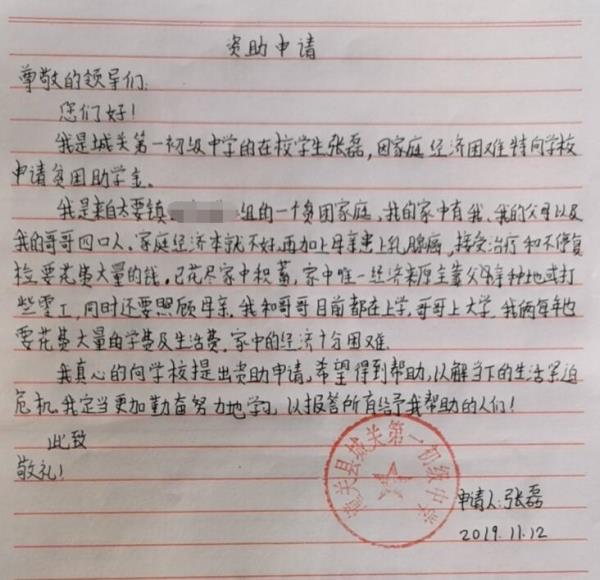 资助申请
尊敬的领导们:
您们好!
我是城关第一初级中学的在校学生张磊,因家庭经济困难特向学校
申请贫困助学金。
我是来自太要镇 组的一个贫困家庭,我的家中有我、我的父母以及
我的哥哥四口人。家庭经济本就不好,再加上母亲患上乳腺癌,接受治疗和不停复
检,要花费大量的钱。已花尽家中积蓄,家中唯一经济来原主靠父母亲种地或打
些零工,同时还要照顾母亲。我和哥哥目前都在上学,哥哥上大学,我俩每年也
要花费大量的学费及生活费。家中的经济十分困难。
我真心的向学校提出资助申请,希望得到帮助,以解当下的生活紧迫
危机。我定当更加勤奋努力地学习,以报答所有给予我帮助的人们!
此致
敬礼!
潼关县城关第一初级中学
申请人:张磊
2019.11.12